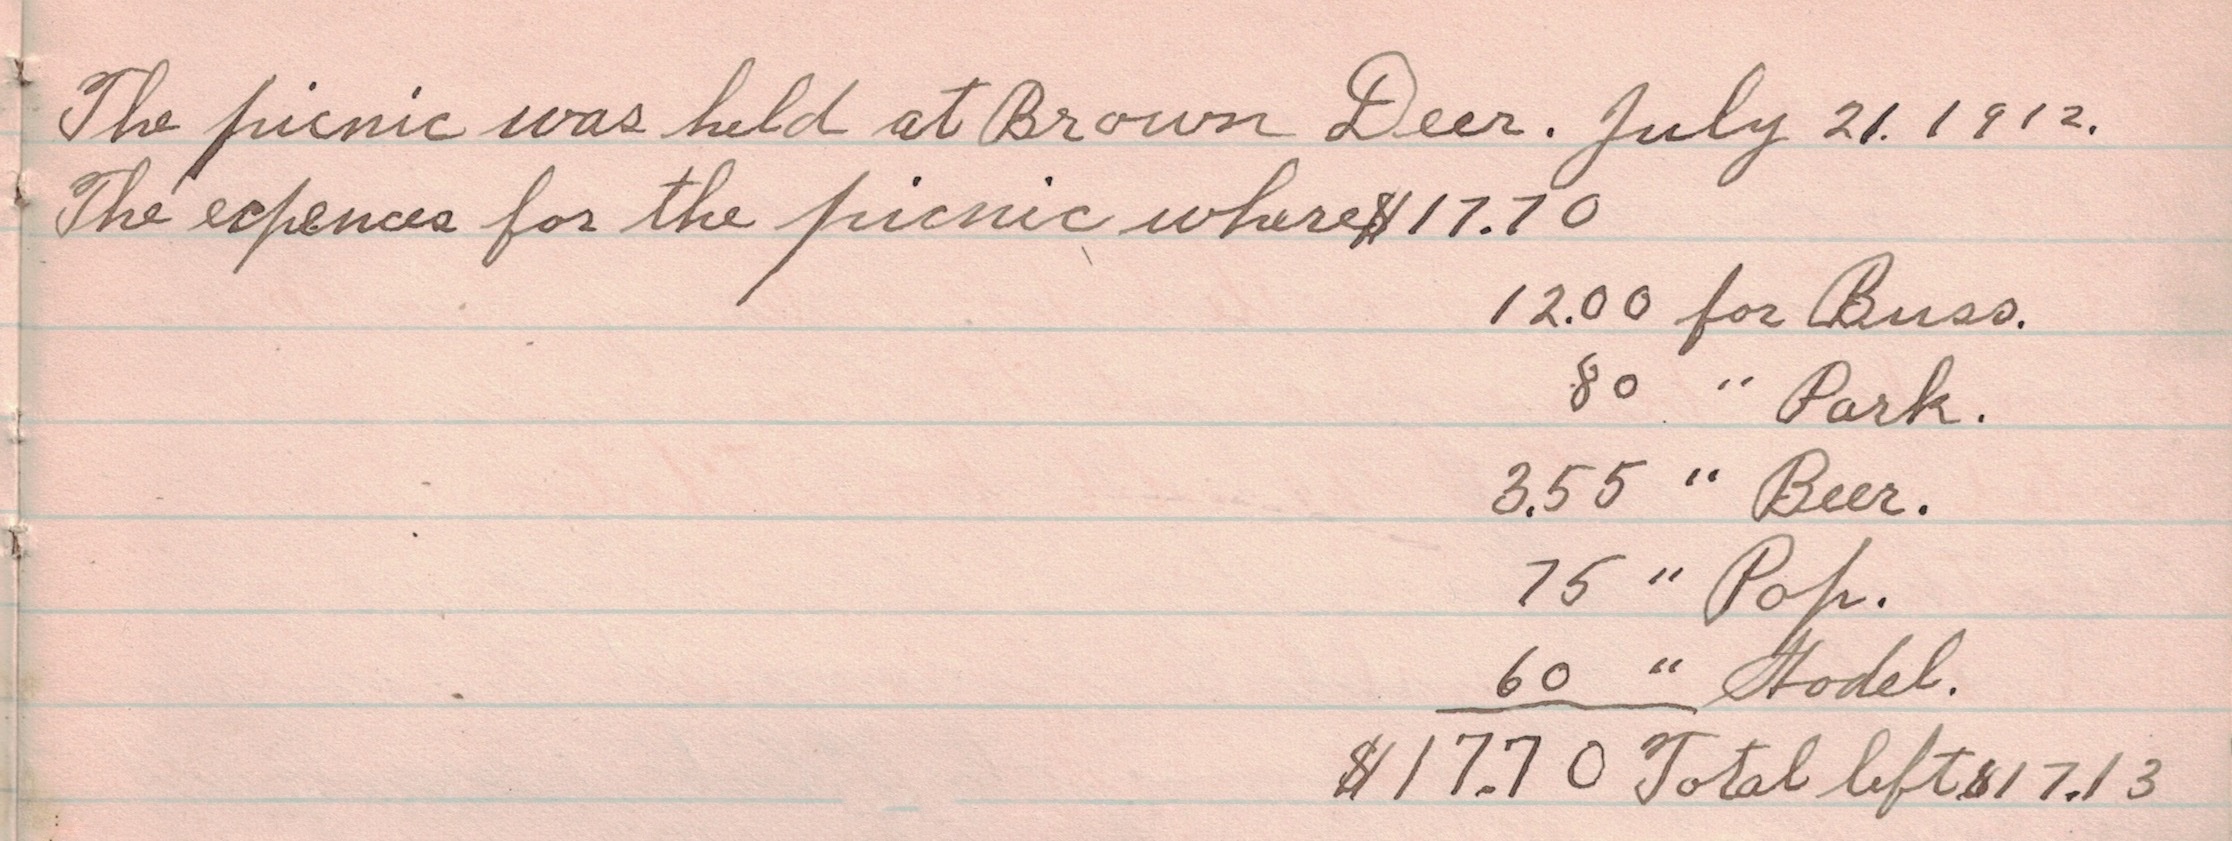 The picnic was held at Brown Deer. July 21. 1912.
The expences for the picnic where $17.70
12.00 for Buss.
80 " Park.
3.55 " Beer.
75 " Pop.
60 " Hodel.
$17.70 Total left $17.13